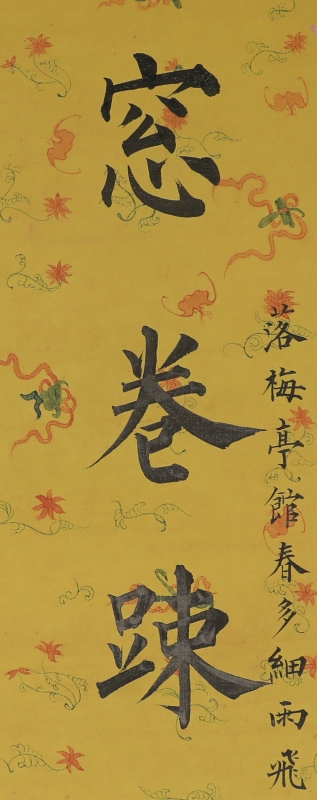 落梅亭館春多細雨飛
窓卷踈